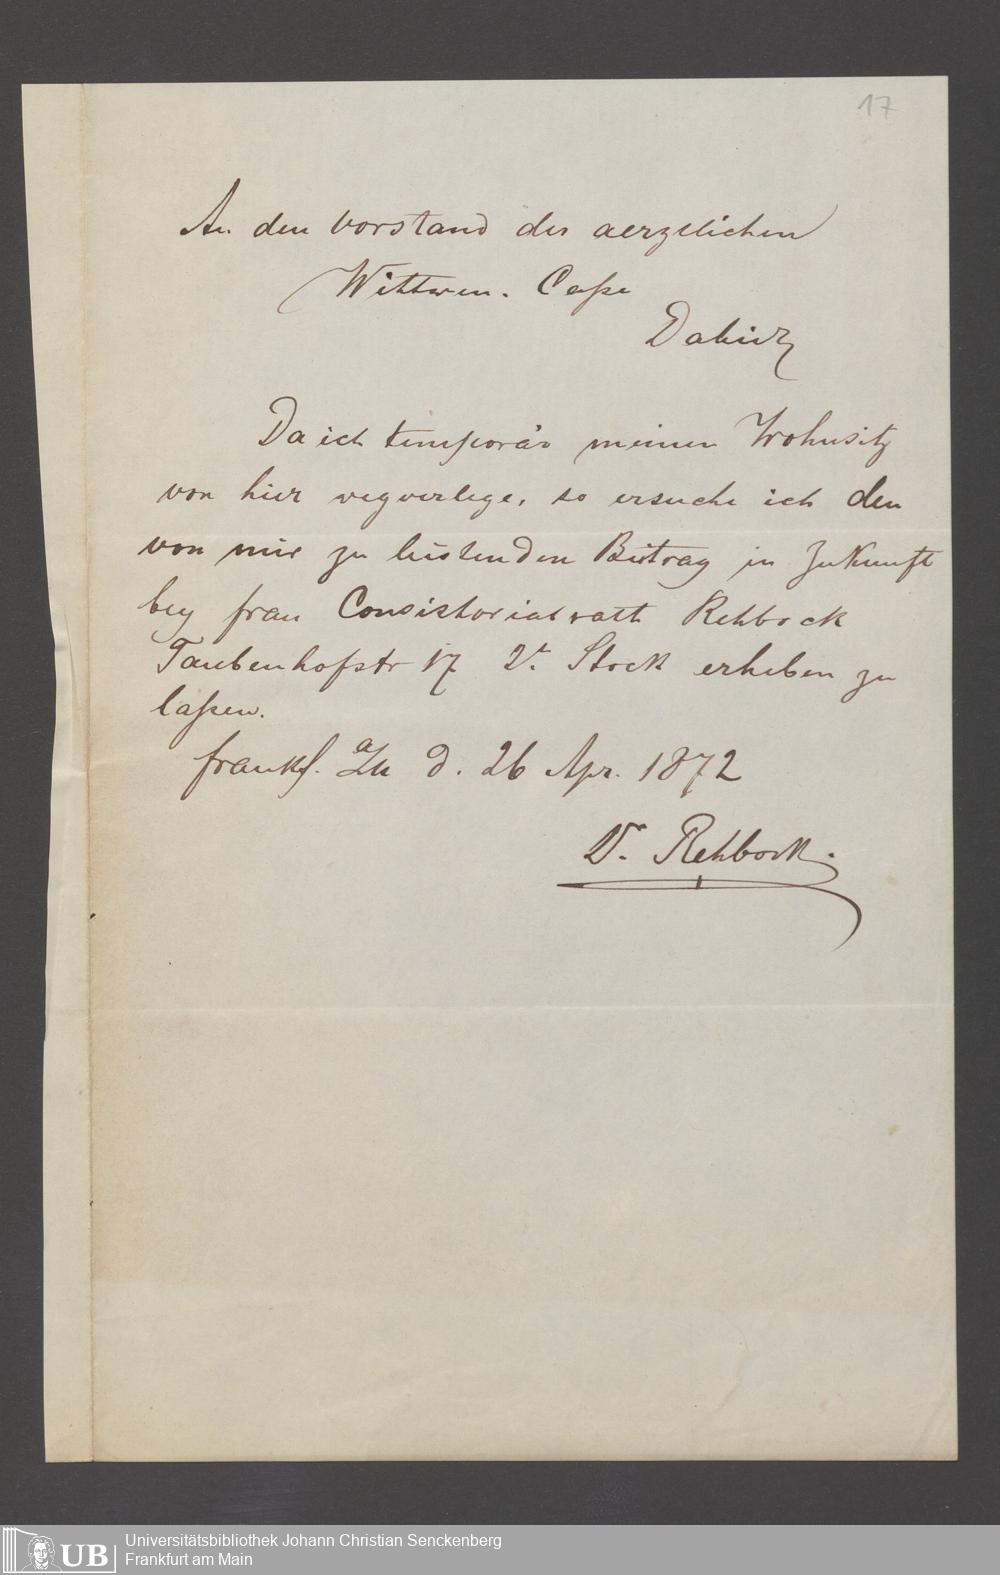 17
An den Vorstand der aerztlichen
Wittwen-Casse
Dahier
Da ich temporär meinen Wohnsitz
von hier wegverlege, so ersuche ich den
von mir zu leistenden Beitrag in Zukunft
bey Frau Consistorialrath Rehbock
Taubenhofstr 17 2t. Stock erheben zu
laßen.
Frankf. a/M d. 26 Apr. 1872
Dr. Rehbock.
UB
Universitätsbibliothek Johann Christian Senckenberg
Frankfurt am Main